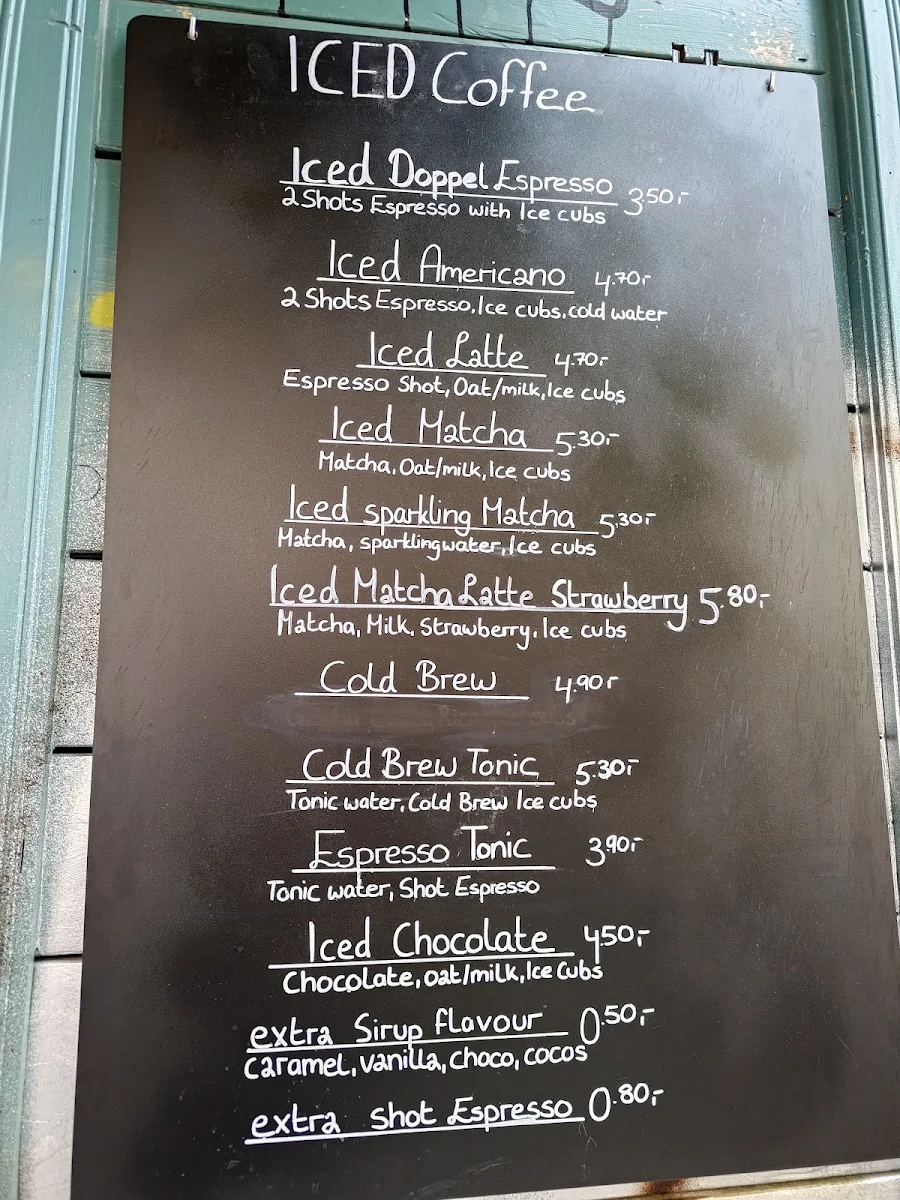 ICED Coffee
Iced Doppel Espresso 3.50,-
2 Shots Espresso with Ice cubs
Iced Americano 4.70,-
2 Shots Espresso, Ice cubs, cold water
Iced Latte 4.70,-
Espresso Shot, Oat/milk, Ice cubs
Iced Matcha 5.30,-
Matcha, Oat/milk, Ice cubs
Iced sparkling Matcha 5.30,-
Matcha, sparklingwater, Ice cubs
Iced Matcha Latte Strawberry 5.80,-
Matcha, Milk, Strawberry, Ice cubs
Cold Brew 4.90,-
Cold Brew Tonic 5.30,-
Tonic water, Cold Brew Ice cubs
Espresso Tonic 3.90,-
Tonic water, Shot Espresso
Iced Chocolate 4.50,-
Chocolate, oat/milk, Ice Cubs
extra Sirup flavour 0.50,-
caramel, vanilla, choco, cocos
extra shot Espresso 0.80,-